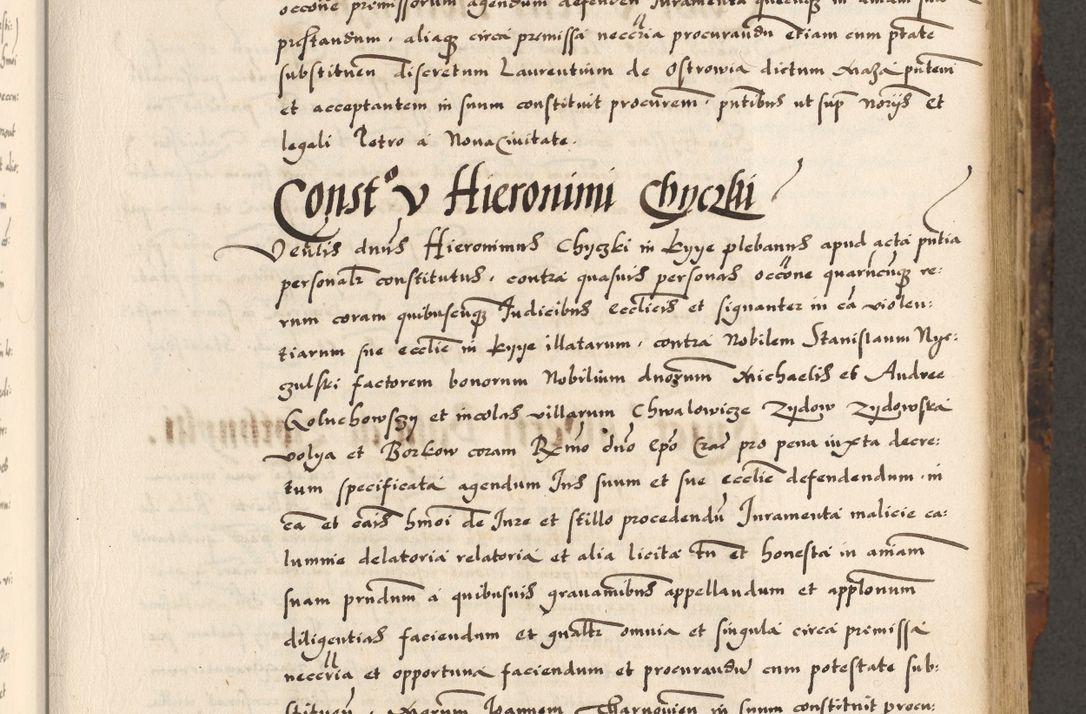 occone premissorum agendum defenden Iuramenta quecuq in
prestandum . aliaq circa premissa neccria procurandu etiam cum ptate
substituen discretum Laurentium de Ostrowia dictum Maza pntem
et acceptantem in suum constituit procurem . pntibus ut sup noriis et
legali Petro a Nova Civitate .
Const° V Hieronimi Chyczki
Venlis dnus Hieronimus Chyczki in Kyye plebanus apud acta pntia
personalr constitutus . contra quasuis personas occone quarucuq re:
rum coram quibuscuq Iudicibus ecclicis et signanter in ca violen:
tiarum sue ecclie in Kyye illatarum . contra Nobilem Stanislaum Nyc:
zulski factorem bonorum Nobilium dnorum Michaelis et Andree
Goluchowszy et incolas villarum Chwalowicze Zydow Zydowska
volya et Borkow coram Rmo dno Epo Crac pro pena iuxta decre:
tum specificata agendum Ius suum et sue ecclie defendendum . in
ca et cais hmoi de Iure et stillo procedendu Iuramenta malicie ca:
lumnie delatoria relatoria et alia licita tn et honesta in aniam
suam prndum a quibusuis gravaminibus appellandum et applonum
diligentias faciendum et gnaltr omnia et singula circa premissa
neccria et opportuna faciendum et procurandu cum potestate sub:
stituen . Ioannem Tharnowien in suum constituit procu: